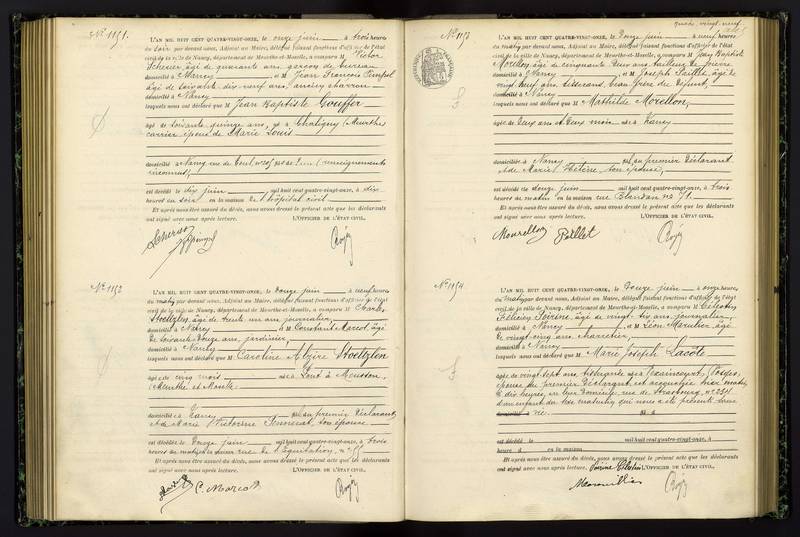 No 1151.
L'AN MIL HUIT CENT QUATRE-VINGT-ONZE, le onze juin à trois heures
du soir par devant nous, Adjoint au Maire, délégué faisant fonctions d'officier de l'état
civil de la ville de Nancy, département de Meurthe-et-Moselle, a comparu M Victor
âgé de quarante ans, garçon de bureau
domicilié à Nancy et M Jean François
âgé de soixante-dix neuf ans, ancien charron
domicilié à Nancy
lesquels nous ont déclaré que M Jean Baptiste Gouffer
âgé de soixante quinze ans, né à Chaligny (Meurthe
carrier époux de Marie Louis
domicilié à Nancy rue de Toul, fils de (renseignements
inconnus)
est décédé le dix juin mil huit cent quatre-vingt-onze, à dix
heures du soir en la maison de l'hôpital civil
Et après nous être assuré du décès, nous avons dressé le présent acte que les déclarants
ont signé avec nous après lecture. L'OFFICIER DE L'ÉTAT CIVIL,
No 1152
L'AN MIL HUIT CENT QUATRE-VINGT-ONZE, le douze juin à neuf heures
du matin par devant nous, Adjoint au Maire, délégué faisant fonctions d'officier de l'état
civil de la ville de Nancy, département de Meurthe-et-Moselle, a comparu M Charles
Stoetzlen, âgé de trente un ans, journalier
domicilié à Nancy et M Constant Marcot, âgé
de soixante douze ans, jardinier,
domicilié à Nancy
lesquels nous ont déclaré que M Caroline Alzire Stoetzlen
âgée de cinq mois née à Pont à Mousson,
(Meurthe et Moselle
domiciliée à Nancy fille du premier déclarant
et de Marie Victorine son épouse
est décédée le douze juin mil huit cent quatre-vingt-onze, à trois
heures du matin en la maison rue de l'équitation, no
Et après nous être assuré du décès, nous avons dressé le présent acte que les déclarants
ont signé avec nous après lecture. L'OFFICIER DE L'ÉTAT CIVIL,
C. Marcot
quatre vingt neuf
No 1153
L'AN MIL HUIT CENT QUATRE-VINGT-ONZE, le douze juin à neuf heures
du matin par devant nous, Adjoint au Maire, délégué faisant fonctions d'officier de l'état
civil de la ville de Nancy, département de Meurthe-et-Moselle, a comparu M Jean Baptiste
Morellon, âgé de cinquante deux ans, tailleur de pierre
domicilié à Nancy et M Joseph Paillet, âgé de
vingt neuf ans, beau frère du défunt,
domicilié à Nancy
lesquels nous ont déclaré que M Mathilde Morellon,
âgée de deux ans et deux mois née à Nancy
domiciliée à Nancy fille du premier déclarant
et de Marie son épouse,
est décédée le douze juin mil huit cent quatre-vingt-onze, à trois
heures du matin en la maison rue Blandan no 71.
Et après nous être assuré du décès, nous avons dressé le présent acte que les déclarants
ont signé avec nous après lecture. L'OFFICIER DE L'ÉTAT CIVIL,
Morellon
No 1154
L'AN MIL HUIT CENT QUATRE-VINGT-ONZE, le douze juin à onze heures
du matin par devant nous, Adjoint au Maire, délégué faisant fonctions d'officier de l'état
civil de la ville de Nancy, département de Meurthe-et-Moselle, a comparu M Célestin
âgé de vingt six ans, journalier,
domicilié à Nancy, et M Léon âgé
de vingt cinq ans, charretier
domicilié à Nancy
lesquels nous ont déclaré que M Marie Joseph Lacôte
âgée de vingt sept ans née à (Vosges,
épouse du premier déclarant, est accouchée hier matin
à dix heures, en leur domicile, rue de Strasbourg, no 234
d'un enfant du sexe masculin qui nous a été présenté sans
vie.
est décédé le mil huit cent quatre-vingt-onze, à
heure d en la maison
Et après nous être assuré du décès, nous avons dressé le présent acte que les déclarants
ont signé avec nous après lecture. L'OFFICIER DE L'ÉTAT CIVIL,